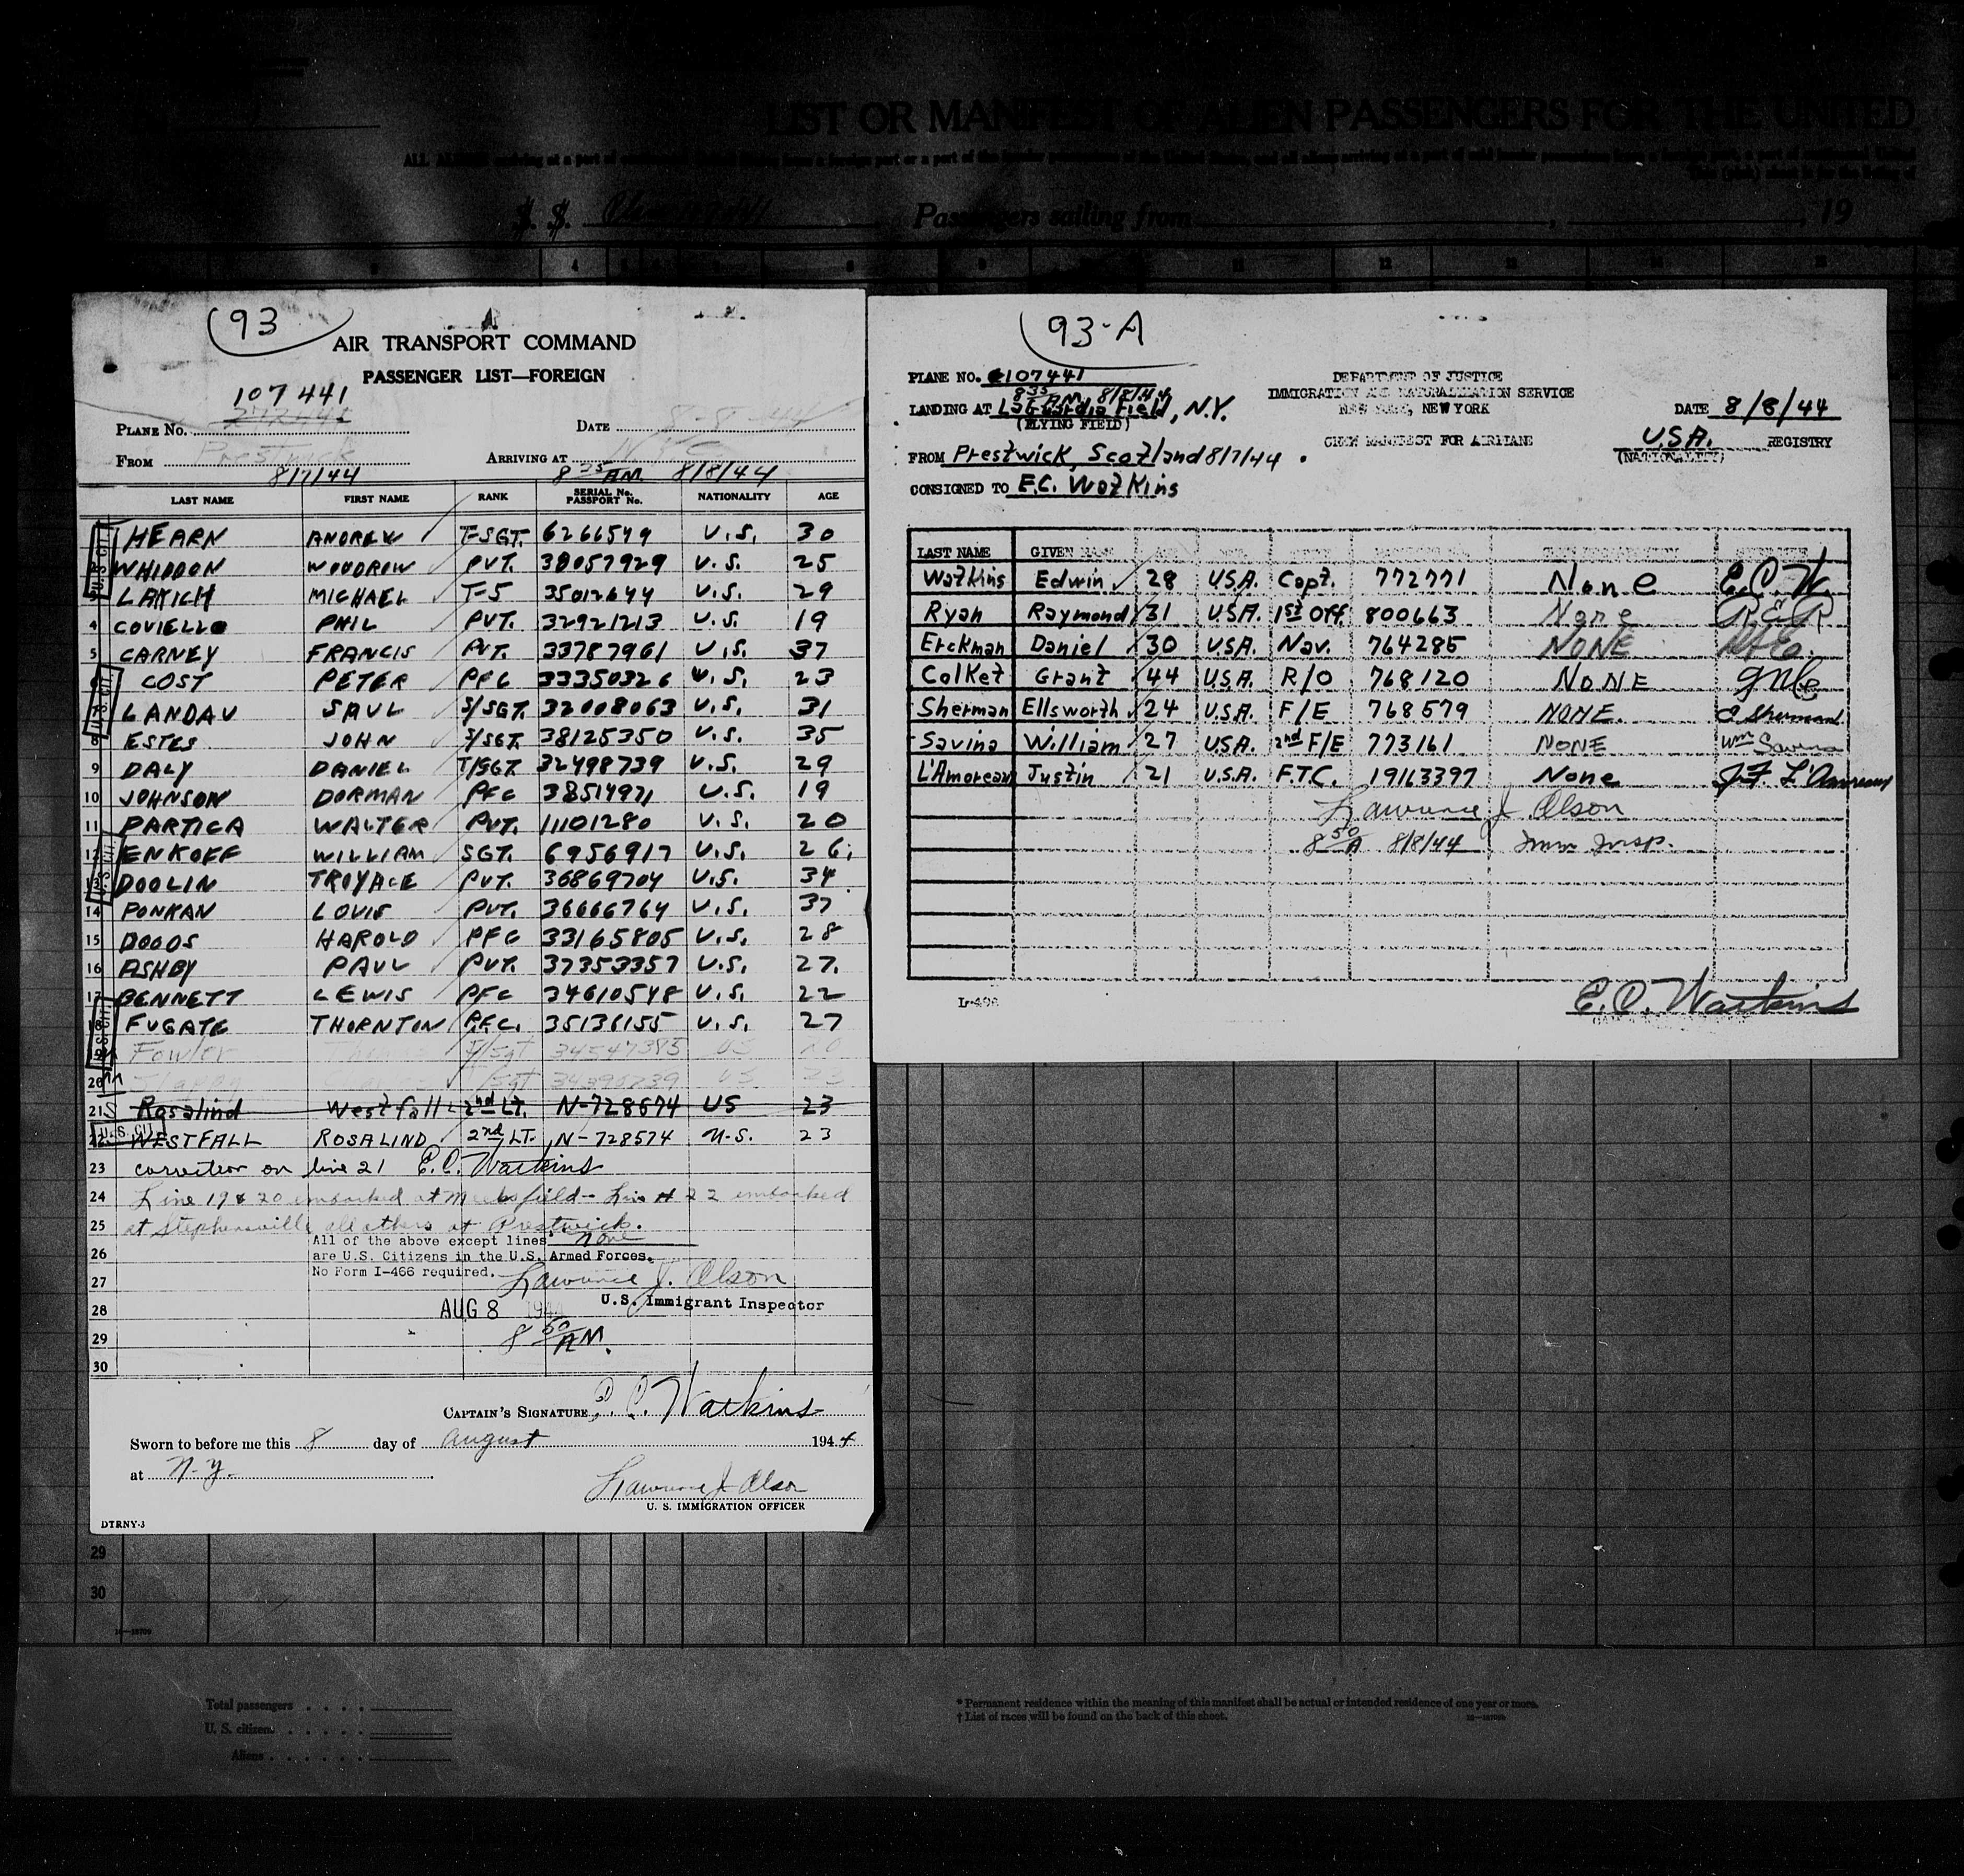 LIST OR MANIFEST OF ALIEN PASSENGERS FOR THE UNITED
S. S. Passengers sailing from , 19
93
AIR TRANSPORT COMMAND
PASSENGER LIST—FOREIGN
107441
PLANE No. 272441 DATE 8-8-44
FROM Prestwick ARRIVING AT NYC
8/7/44 8 35 AM 8/8/44
LAST NAME FIRST NAME RANK SERIAL No. PASSPORT No. NATIONALITY AGE
HEARN ANDREW T-SGT. 6266549 U.S. 30
WHIDDON WOODROW PVT. 38057929 U.S. 25
LAKICH MICHAEL T-5 35012644 U.S. 29
4 COVIELLO PHIL PVT. 32921213 U.S. 19
5 CARNEY FRANCIS PVT. 33787961 U.S. 37
6 COST PETER PFC 33350326 U.S. 23
LANDAU SAUL S/SGT. 32008063 U.S. 31
8 ESTES JOHN S/SGT. 38125350 U.S. 35
9 DALY DANIEL T/SGT. 32498739 U.S. 29
10 JOHNSON DORMAN PFC 38514971 U.S. 19
11 PARTICA WALTER PVT. 11101280 U.S. 20
12 ENKOFF WILLIAM SGT. 6956917 U.S. 26
13 DOOLIN TROYALE PVT. 36869704 U.S. 34
14 PONKAN LOUIS PVT. 36666764 U.S. 37
15 DODDS HAROLD PFC 33165805 U.S. 28
16 ASHBY PAUL PVT. 37353357 U.S. 27.
17 BENNETT LEWIS PFC 34610548 U.S. 22
18 FUGATE THORNTON PFC. 35136155 U.S. 27
19 Fowler T/Sgt 34547385 US
20 34395739 US
21 Rosalind Westfall 2nd LT. N-728674 US 23
U.S. CIT.
22 WESTFALL ROSALIND 2nd LT. N-728574 U.S. 23
23 correction on line 21 E.C. Watkins
24 Line 19 & 20 embarked at Meeks field - Line # 22 embarked
25 at Stephensville all others at Prestwick.
All of the above except lines none
26 are U.S. Citizens in the U.S. Armed Forces.
27 No Form I-466 required. Lawrence J. Olson
28 AUG 8 1944 U.S. Immigrant Inspector
29 8 50 AM.
30
CAPTAIN'S SIGNATURE E. C. Watkins
Sworn to before me this 8 day of August 1944
at N.Y.
Lawrence J. Olson
U. S. IMMIGRATION OFFICER
DTRNY-3
93-A
PLANE NO. 107441
8 35 AM 8/8/44
LANDING AT LaGuardia Field, N.Y.
(FLYING FIELD)
FROM Prestwick, Scotland 8/7/44
CONSIGNED TO E.C. Watkins
DEPARTMENT OF JUSTICE
IMMIGRATION AND NATURALIZATION SERVICE
NEW YORK, NEW YORK
CREW MANIFEST FOR AIRPLANE
DATE 8/8/44
U.S.A. REGISTRY
(NATIONALITY)
LAST NAME GIVEN NAME
Watkins Edwin 28 U.S.A. Capt. 772771 None E.C.W.
Ryan Raymond 31 U.S.A. 1st Off. 800663 None R.E.R
Erckman Daniel 30 U.S.A. Nav. 764285 NONE
Colket Grant 44 U.S.A. R/O 768120 NONE
Sherman Ellsworth 24 U.S.A. F/E 768579 NONE. E Sherman
Savina William 27 U.S.A. 2nd F/E 773161 NONE Wm Savina
L'Amoreaux Justin 21 U.S.A. F.T.C. 19163397 None J.F. L'Amoreaux
Lawrence J. Olson
8 50 A 8/8/44 Imm Insp.
E.C. Watkins
29
30
Total passengers
U. S. citizens
Aliens
* Permanent residence within the meaning of this manifest shall be actual or intended residence of one year or more.
† List of races will be found on the back of this sheet.